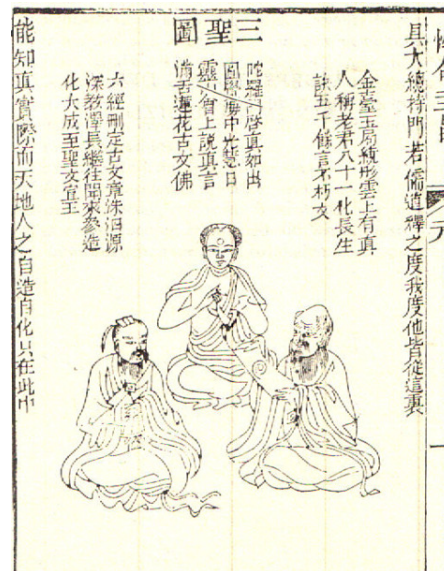 元
具大總持門若儒道釋之度我度他皆從這裏
三聖圖
金臺玉局繞彤雲上有真
人稱老君八十一化長生
訣五千餘言不朽文
陀羅門啓真如出
圓覺海中光慧日
靈山會上說真言
滿舌蓮花古文佛
六經刪定古文章洙泗源
深教澤長繼往開來參造
化大成至聖文宣王
能知真實際而天地人之自造自化只在此中